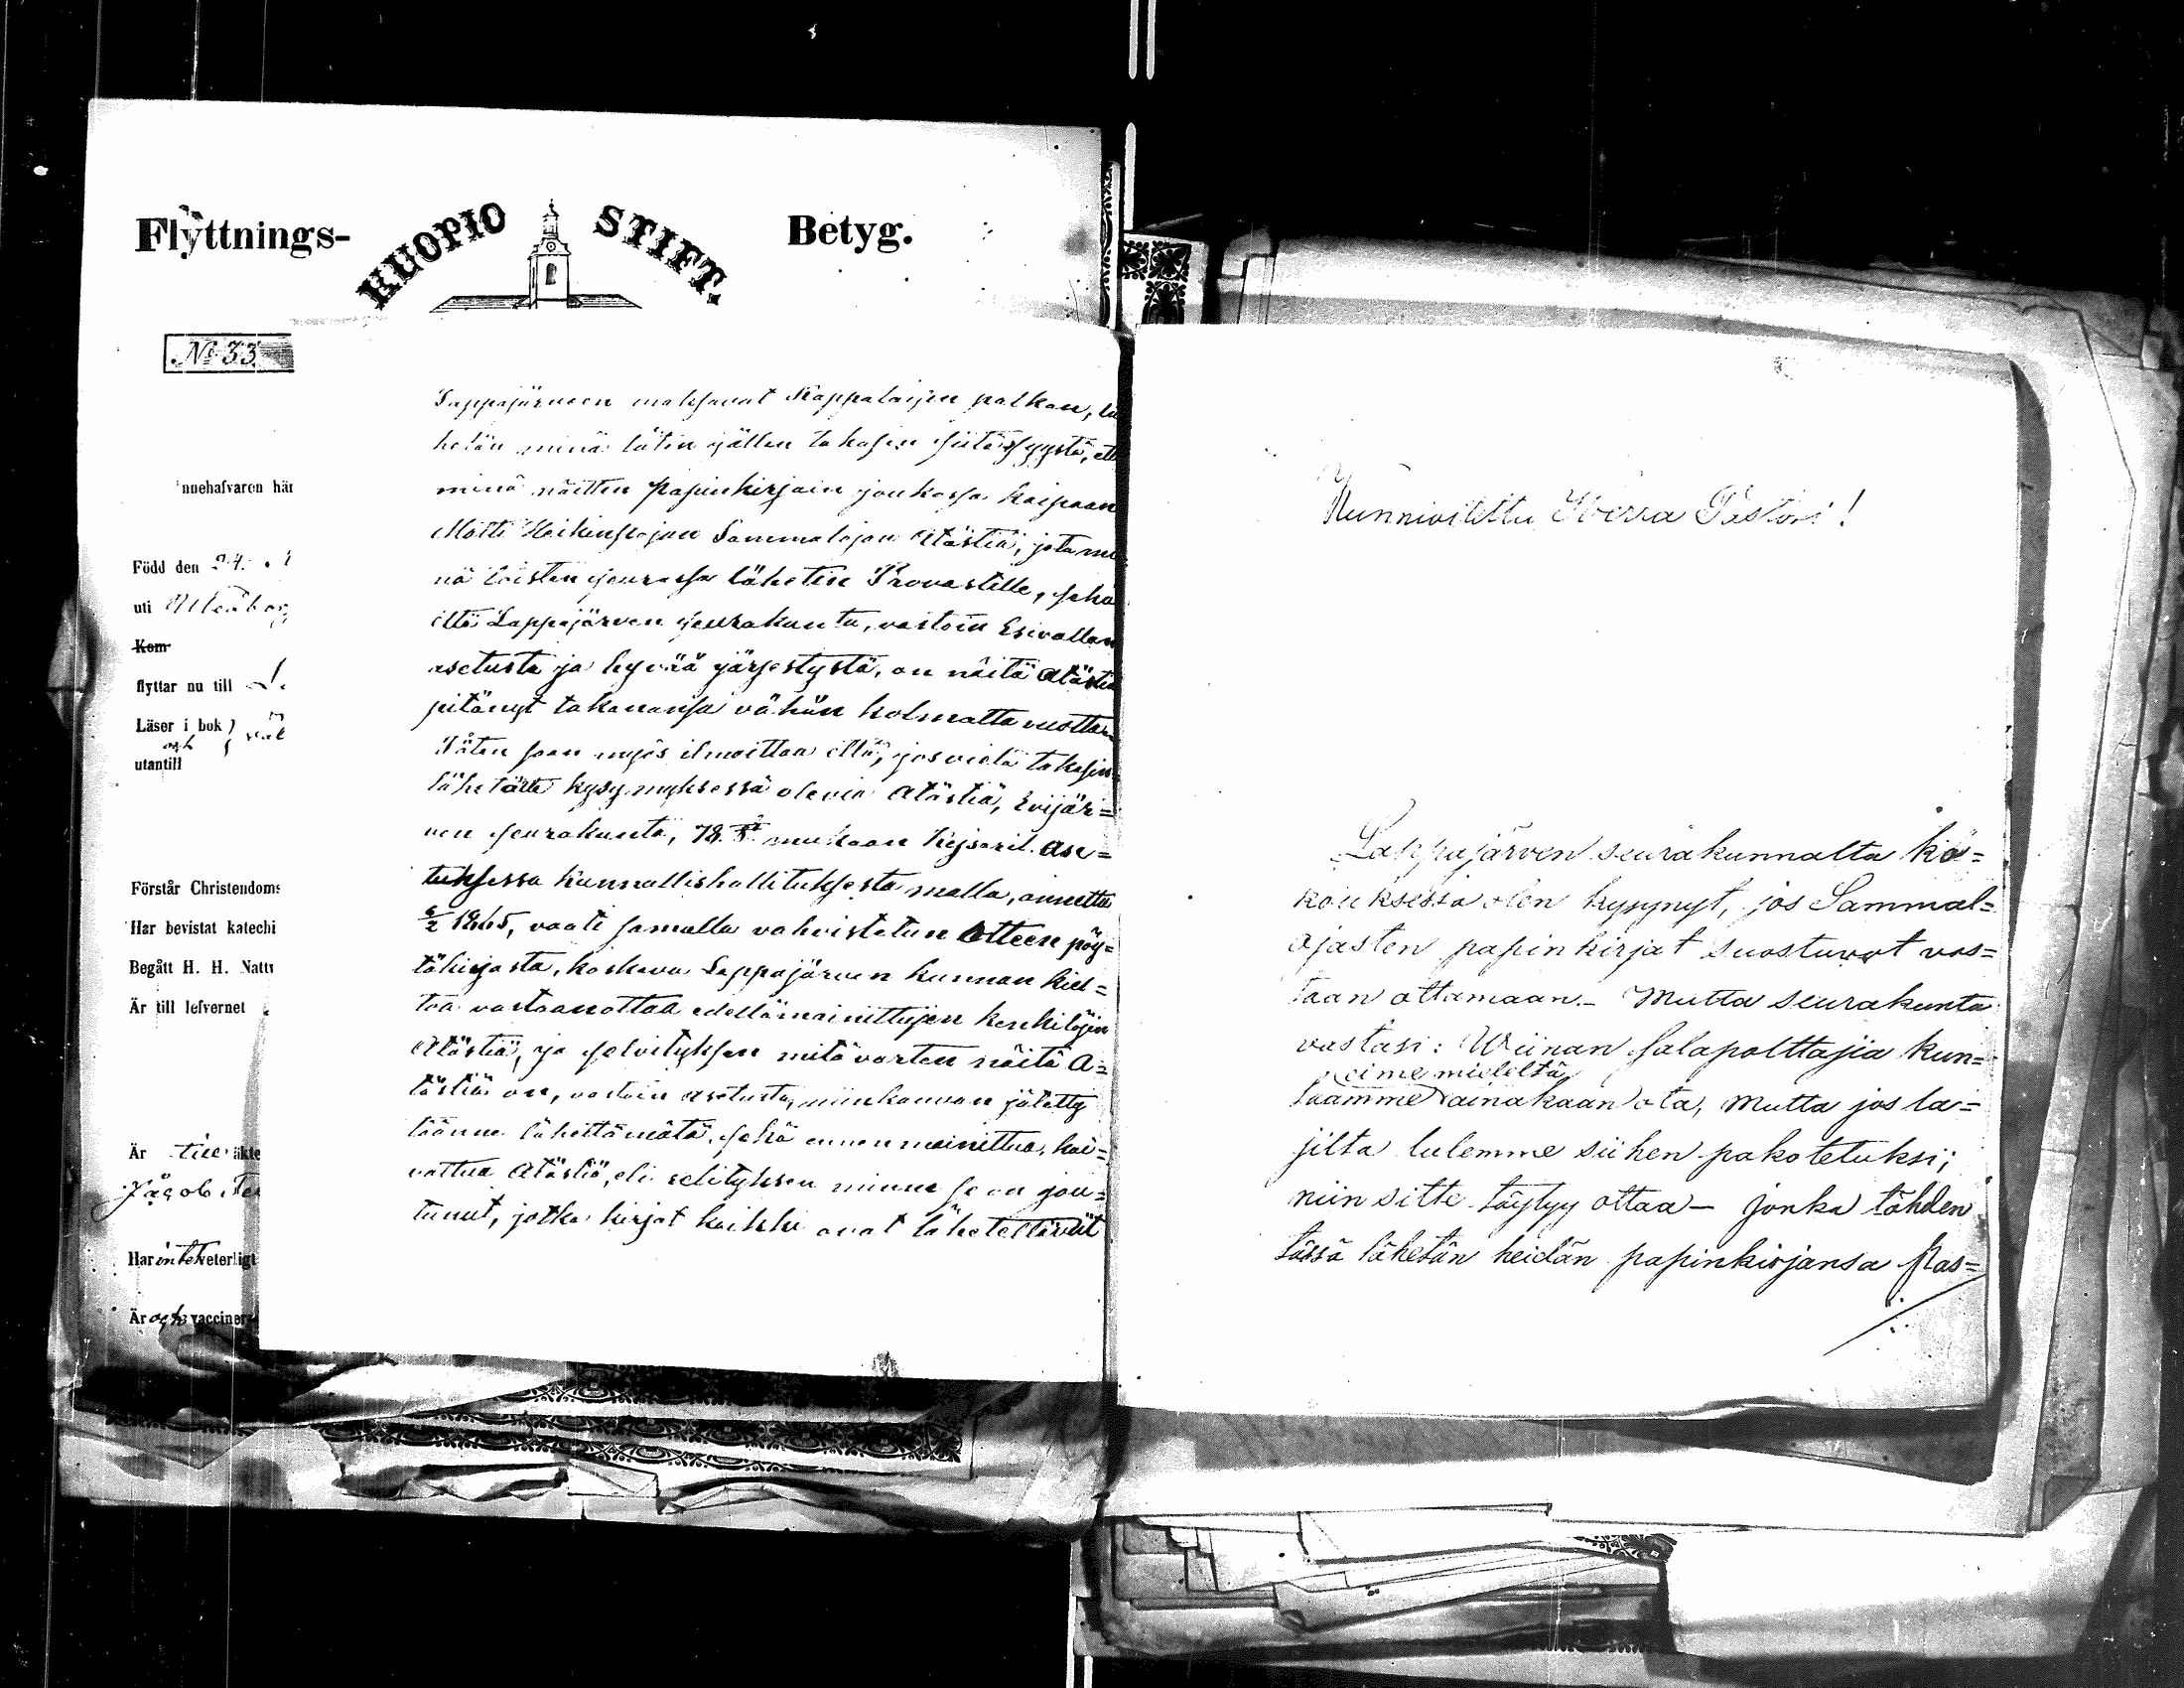 Flyttnings-
KUOPIO STIFT.
Betyg.
No 33
nnehafvaren här
Född den 24.
uti
Kom
flyttar nu till
Läser i bok
och
utantill
Förstår Christendoms
Har bevistat katechi
Begått H. H. Nattv
Är till lefvernet
Är till äkte
Jacob
Har intet veterligt
Är och vaccinera
Lappajärveen maksavat Kappalaisen palkan, lä
hetän minä tätin jällen takasin siitä syystä, ett
minä näitten papinkirjain joukossa kaipaan
Matti Heikinpojan Sammalojan Atästiä, jota mi
nä toisten seurassa lähetin Provastille, sekä
että Lappajärven seurakunta, vastoin Esivallan
asetusta ja hyvää järjestystä, on näitä Atästiä
pitänyt takanansa vähän kolmatta vuotta.
Täten saan myös ilmoittaa että, jos vielä takasin
lähetätte kysymyksessä olevia Atästiä, Evijär=
ven seurakunta, 78 § mukaan Kejseril. ase=
tuksessa kunnallishallituksesta maalla, annettu
6/2 1865, vaatii samalla vahvistetun Otteen pöy=
täkirjasta, koskeva Lappajärven kunnan kiel=
toa vastaanottaa edellämainittujen henkilöjin
Atästiä, ja selvityksen mitä varten näitä A=
tästiä on, vastoin asetusta, niinkauvan jätetty
täänne lähettämätä, sekä ennen mainittua, kai=
vattua Atästiä, eli selityksen minne se on jou=
tunut, jotka kirjat kaikki ovat lähetettävät
Kunnioitettu Herra Pastori!
Lappajärven seurakunnalta ko=
kouksessa olen kysynyt, jos Sammal=
ojasten papinkirjat suostuvat vas=
taan ottamaan.- Mutta seurakunta
vastasi: Wiinan salapolttajia kun=
eime mieleltä
taamme ainakaan ota, Mutta jos la=
jilta tulemme siihen pakotetuksi;
niin sitte täytyy ottaa - Jonka tähden
tässä lähetän heidän papinkirjansa Pas=